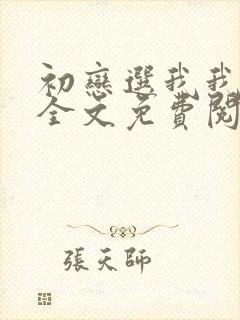 初戀選我我
全文免費閱
張天師